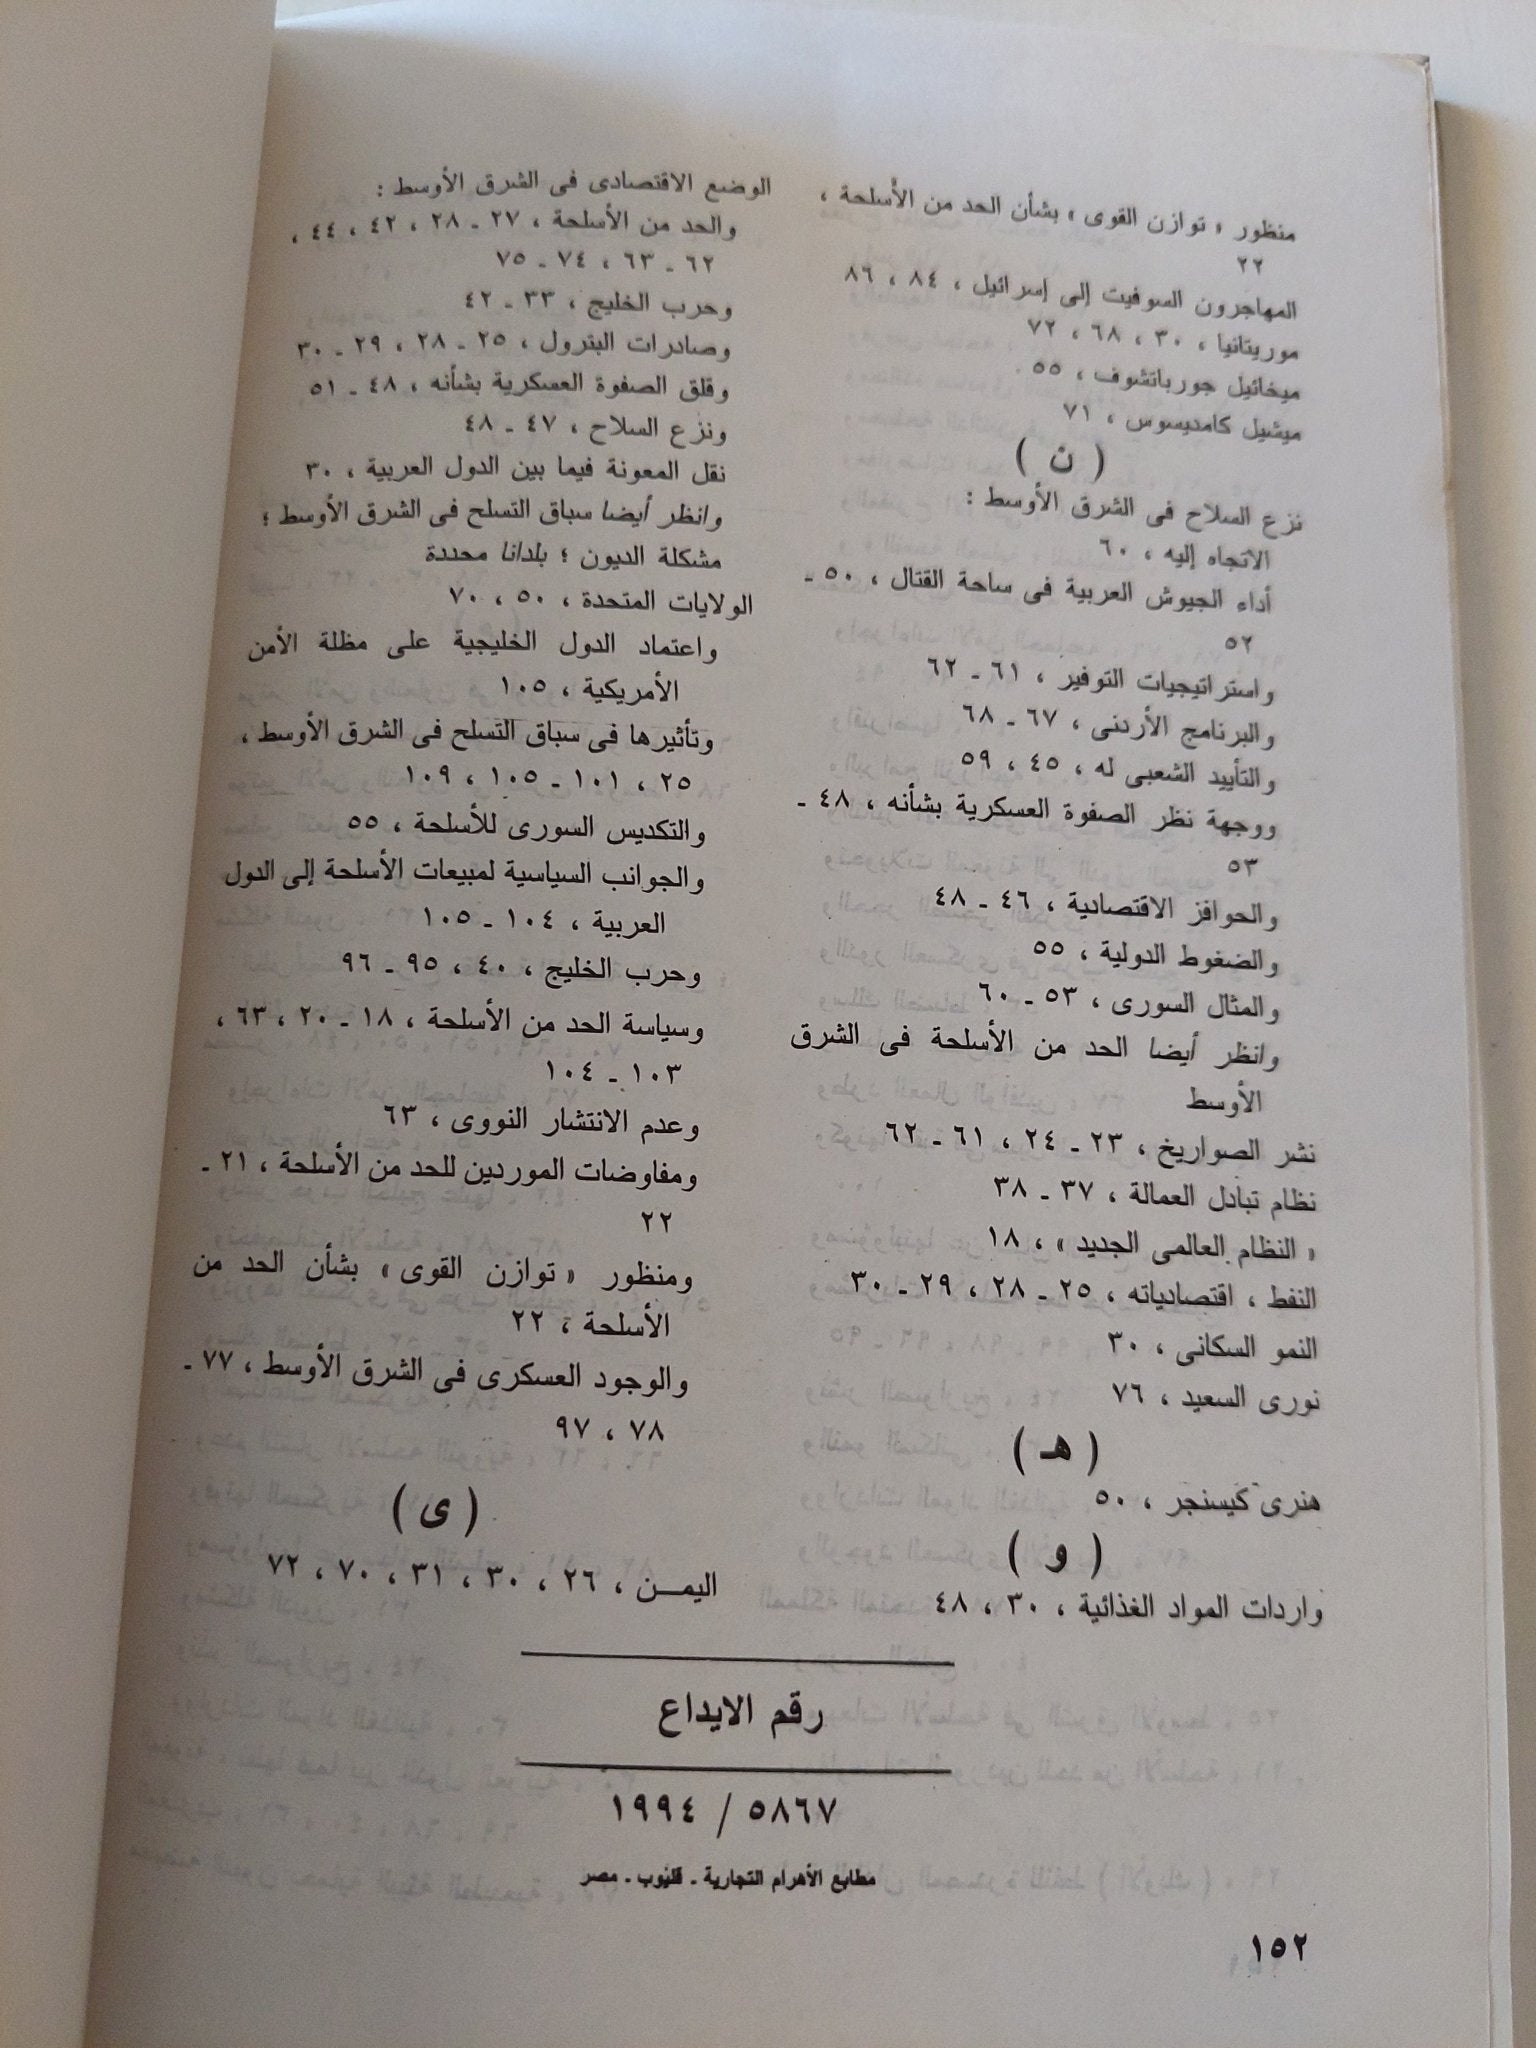 منظور « توازن القوى » بشأن الحد من الأسلحة ،
٢٢
المهاجرون السوفيت إلى إسرائيل ، ٨٤ ، ٨٦
موريتانيا ، ٣٠ ، ٦٨ ، ٧٢
ميخائيل جورباتشوف ، ٥٥
ميشيل كامديسوس ، ٧١
( ن )
نزع السلاح فى الشرق الأوسط :
الاتجاه إليه ، ٦٠
أداء الجيوش العربية فى ساحة القتال ، ٥٠ ـ
٥٢
واستراتيجيات التوفير ، ٦١ ـ ٦٢
والبرنامج الأردنى ، ٦٧ ـ ٦٨
والتأييد الشعبى له ، ٤٥ ، ٥٩
ووجهة نظر الصفوة العسكرية بشأنه ، ٤٨ ـ
٥٣
والحوافز الاقتصادية ، ٤٦ ـ ٤٨
والضغوط الدولية ، ٥٥
والمثال السورى ، ٥٣ ـ ٦٠
وانظر أيضا الحد من الأسلحة فى الشرق
الأوسط
نشر الصواريخ ، ٢٣ ـ ٢٤ ، ٦١ ـ ٦٢
نظام تبادل العمالة ، ٣٧ ـ ٣٨
« النظام العالمى الجديد » ، ١٨
النفط ، اقتصادياته ، ٢٥ ـ ٢٨ ، ٢٩ ـ ٣٠
النمو السكانى ، ٣٠
نورى السعيد ، ٧٦
( هـ )
هنرى كيسنجر ، ٥٠
( و )
واردات المواد الغذائية ، ٣٠ ، ٤٨
الوضع الاقتصادى فى الشرق الأوسط :
والحد من الأسلحة ، ٢٧ ـ ٢٨ ، ٤٢ ، ٤٤ ،
٦٢ ـ ٦٣ ، ٧٤ ـ ٧٥
وحرب الخليج ، ٣٣ ـ ٤٢
وصادرات البترول ، ٢٥ ـ ٢٨ ، ٢٩ ـ ٣٠
وقلق الصفوة العسكرية بشأنه ، ٤٨ ـ ٥١
ونزع السلاح ، ٤٧ ـ ٤٨
نقل المعونة فيما بين الدول العربية ، ٣٠
وانظر أيضا سباق التسلح فى الشرق الأوسط ؛
مشكلة الديون ؛ بلدانا محددة
الولايات المتحدة ، ٥٠ ، ٧٠
واعتماد الدول الخليجية على مظلة الأمن
الأمريكية ، ١٠٥
وتأثيرها فى سباق التسلح فى الشرق الأوسط ،
٢٥ ، ١٠١ ـ ١٠٥ ، ١٠٩
والتكديس السورى للأسلحة ، ٥٥
والجوانب السياسية لمبيعات الأسلحة إلى الدول
العربية ، ١٠٤ ـ ١٠٥
وحرب الخليج ، ٤٠ ، ٩٥ ـ ٩٦
وسياسة الحد من الأسلحة ، ١٨ ـ ٢٠ ، ٦٣ ،
١٠٣ ـ ١٠٤
وعدم الانتشار النووى ، ٦٣
ومفاوضات الموردين للحد من الأسلحة ، ٢١ ـ
٢٢
ومنظور « توازن القوى » بشأن الحد من
الأسلحة ، ٢٢
والوجود العسكرى فى الشرق الأوسط ، ٧٧ ـ
٧٨ ، ٩٧
( ى )
اليمـــن ، ٢٦ ، ٣٠ ، ٣١ ، ٧٠ ، ٧٢
رقم الايداع
٥٨٦٧ / ١٩٩٤
مطابع الأهرام التجارية ـ قليوب ـ مصر
١٥٢